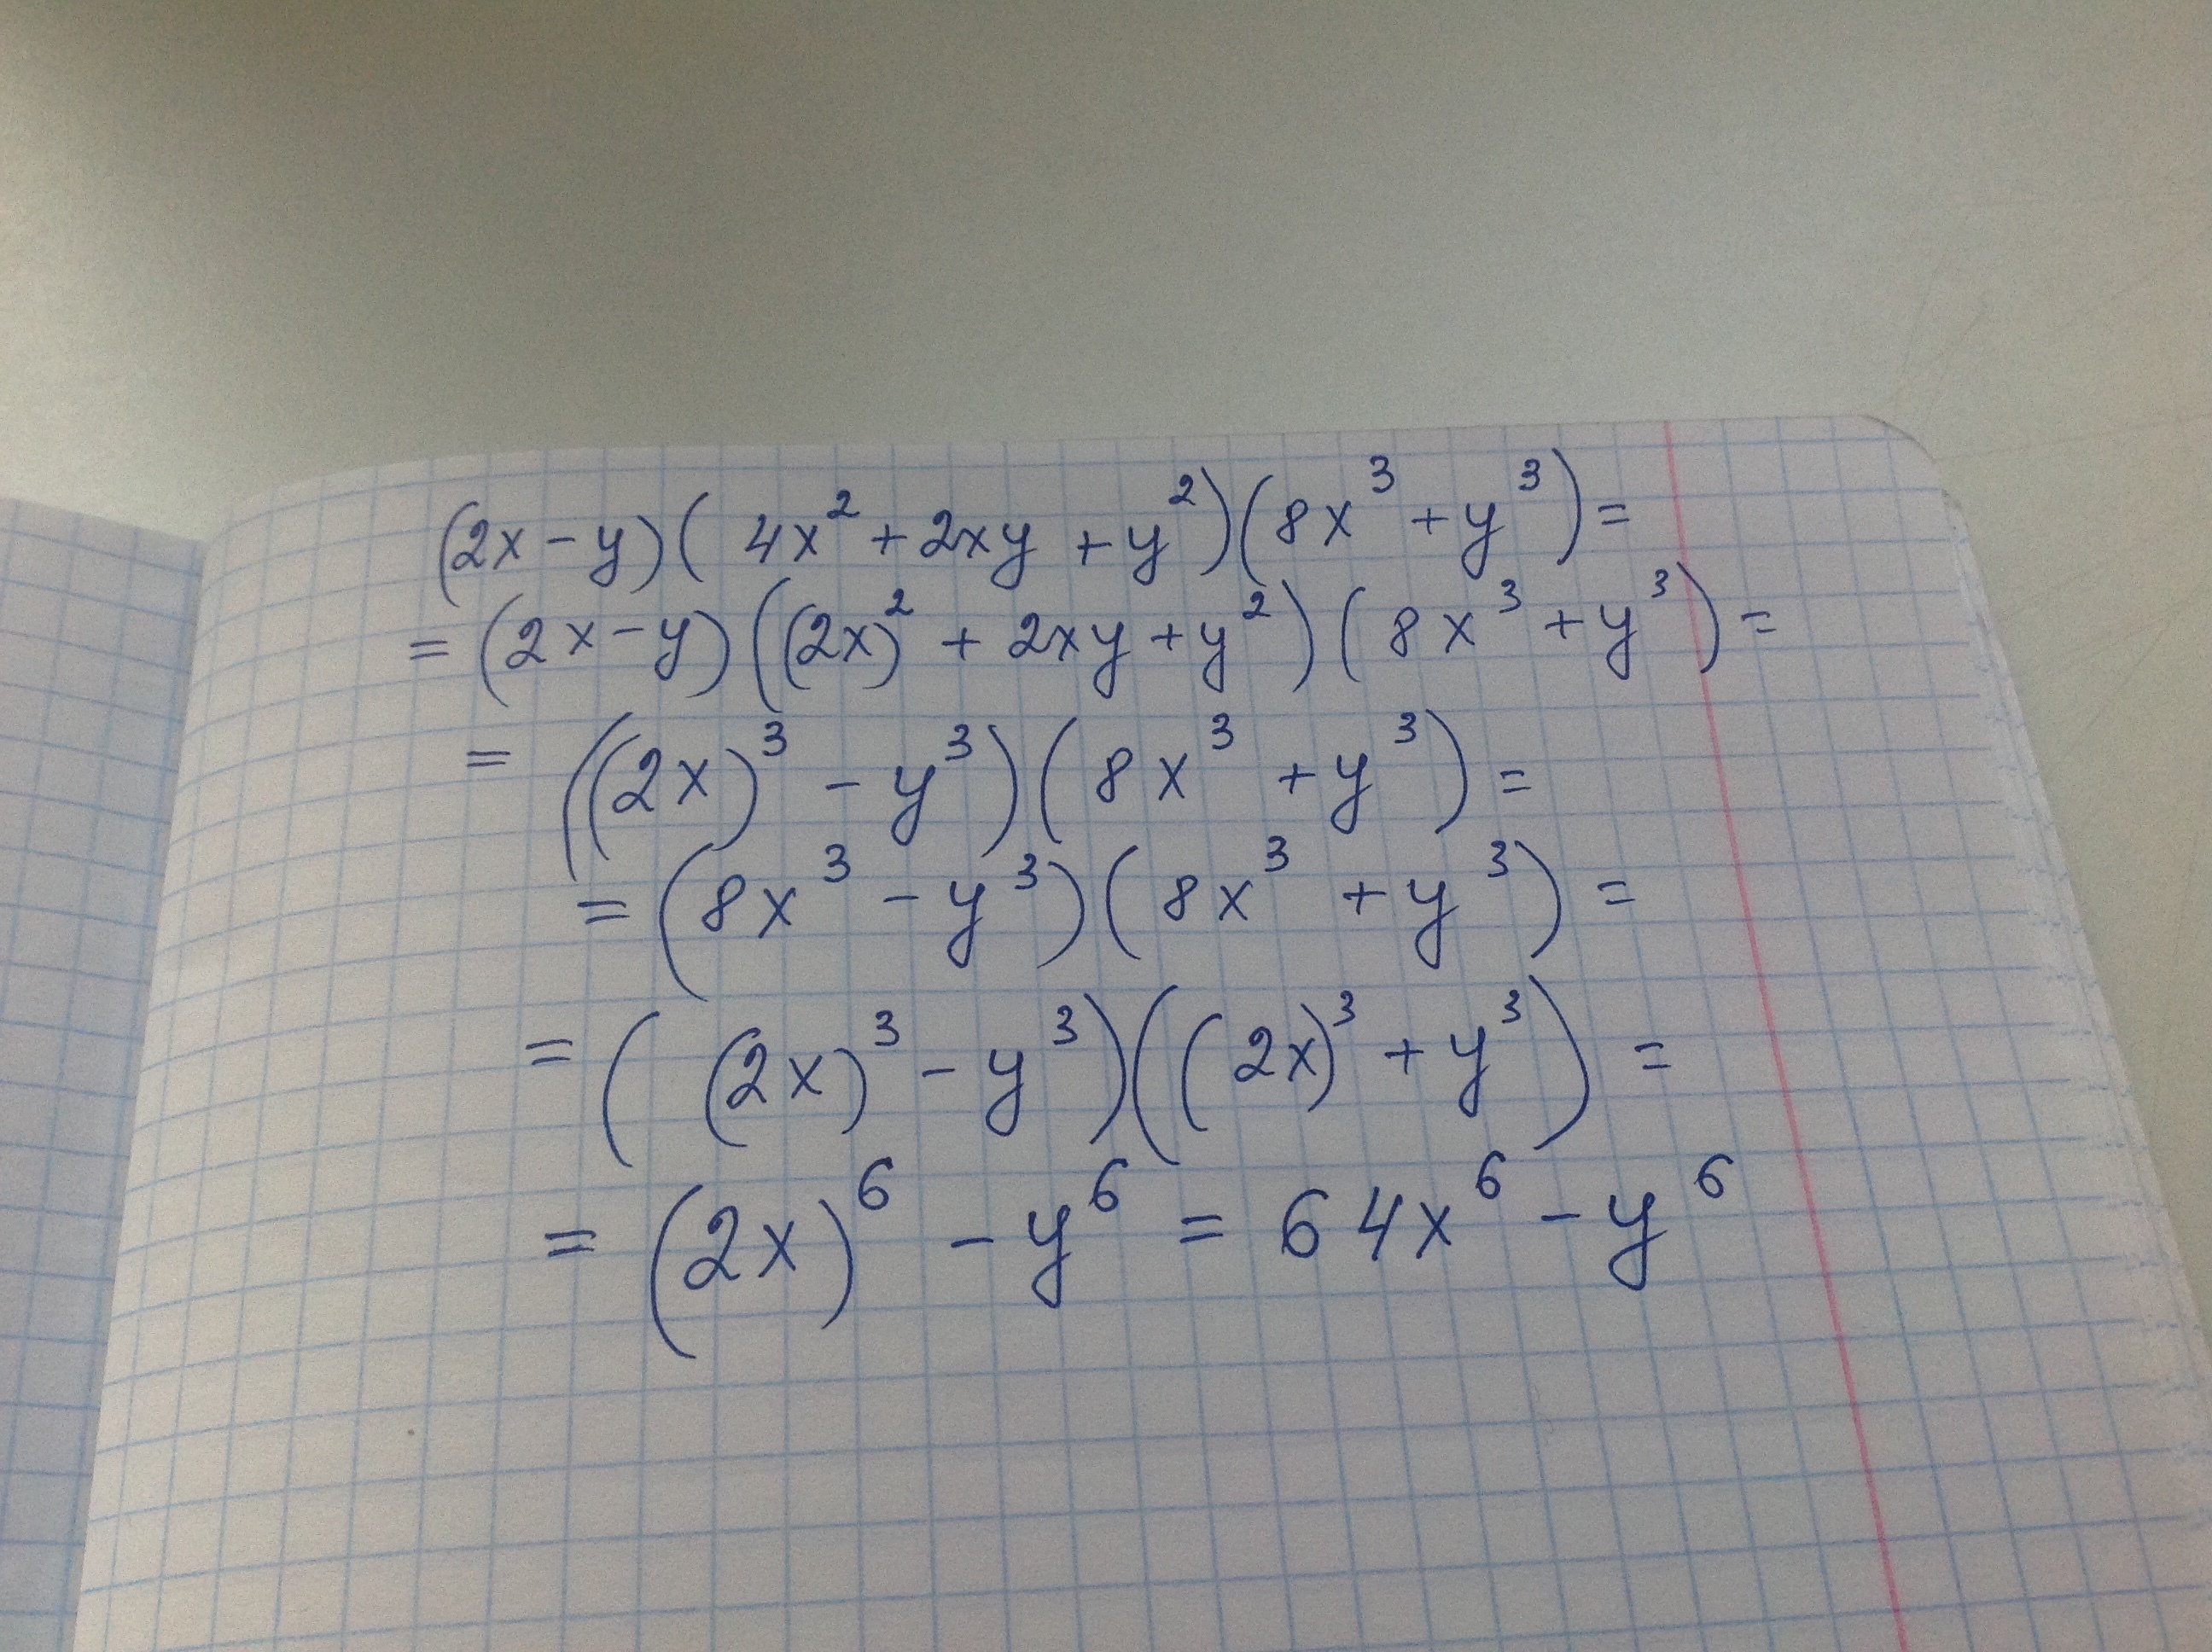 (2x-y)(4x²+2xy+y²)(8x³+y³)=
=(2x-y)((2x)²+2xy+y²)(8x³+y³)=
=((2x)³-y³)(8x³+y³)=
=(8x³-y³)(8x³+y³)=
=((2x)³-y³)((2x)³+y³)=
=(2x)⁶-y⁶=64x⁶-y⁶